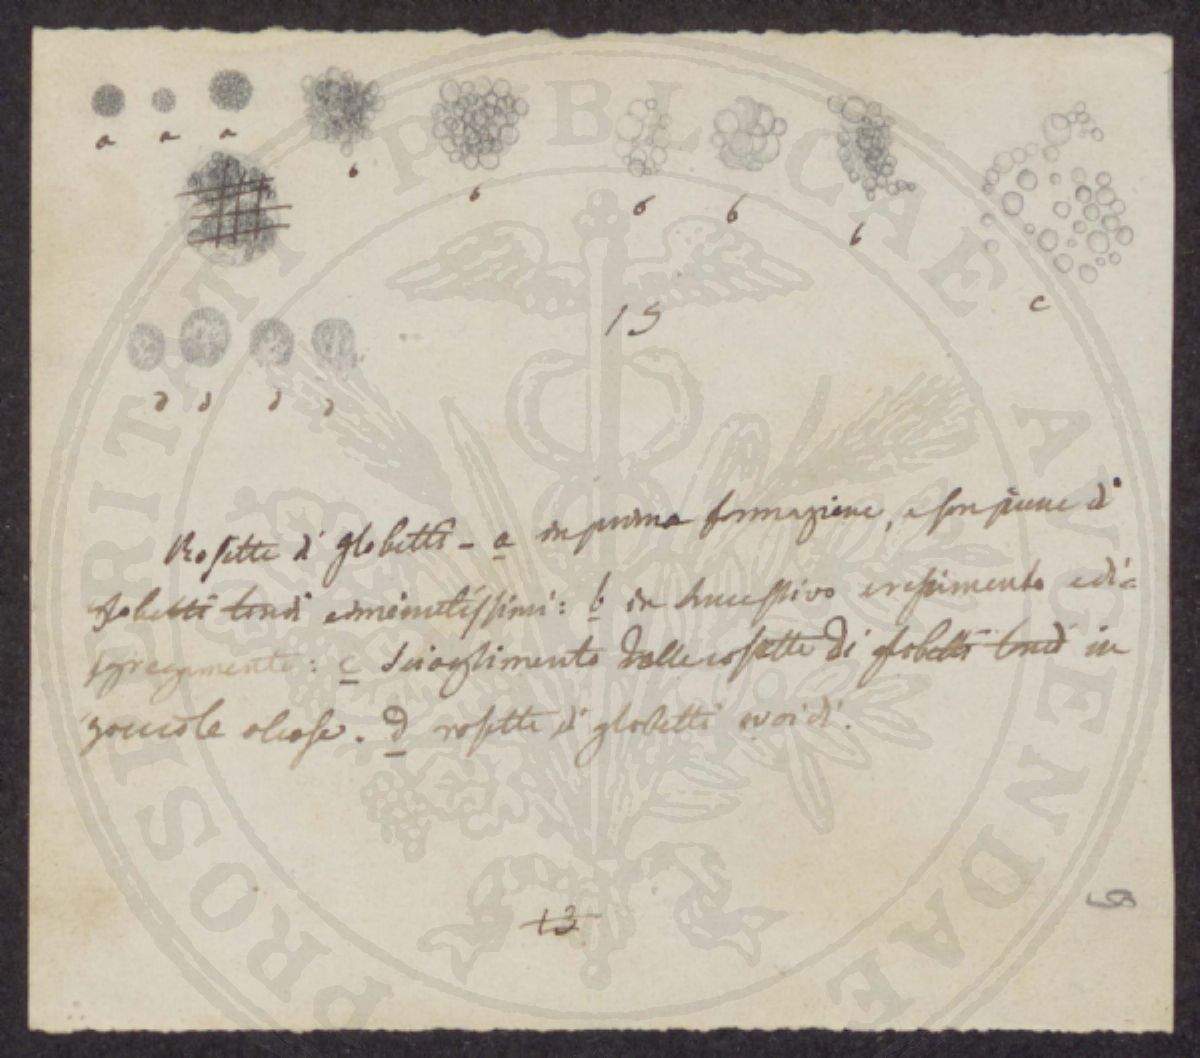 a a a
b b b b b
c
15
d d d d
Rosette di globetti - a in prima formazione, e son piene di
globetti tondi e minutissimi: b in successivo crescimento e di=
sgregamento: c scioglimento dalle rosette di globetti tondi in
gocciole oliose. d rosette di globetti ovoidi.
13
PROSPERITATI PUBLICAE AUGENDAE